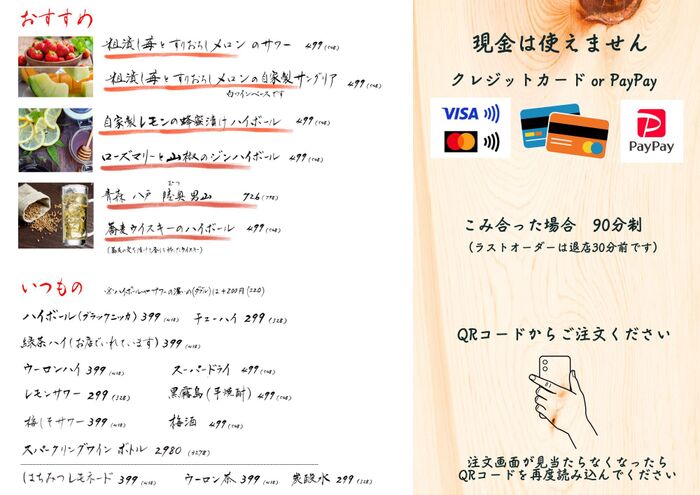 おすすめ
粗漉し苺とすりおろしメロンのサワー 499(548)
粗漉し苺とすりおろしメロンの自家製サングリア 499(548)
白ワインベースです
自家製レモンの蜂蜜漬けハイボール 499(548)
ローズマリーと山椒のジンハイボール 499(548)
むつ
青森 八戸 陸奥男山 726(798)
蕎麦ウイスキーのハイボール 499(548)
いつもの
※ハイボールやサワーの濃いの(ダブル)は+200円(220)
ハイボール(ブラックニッカ) 399(418) チューハイ 299(328)
緑茶ハイ(お店でいれています) 399(418)
ウーロンハイ 399(418) スーパードライ 499(548)
レモンサワー 299(328) 黒霧島(芋焼酎) 499(548)
梅しそサワー 399(418) 梅酒 499(548)
スパークリングワイン ボトル 2980(3278)
はちみつレモネード 399(418) ウーロン茶 399(418) 炭酸水 299(328)
現金は使えません
クレジットカード or PayPay
VISA
PayPay
こみ合った場合 90分制
(ラストオーダーは退店30分前です)
QRコードからご注文ください
注文画面が見当たらなくなったら
QRコードを再度読み込んでください